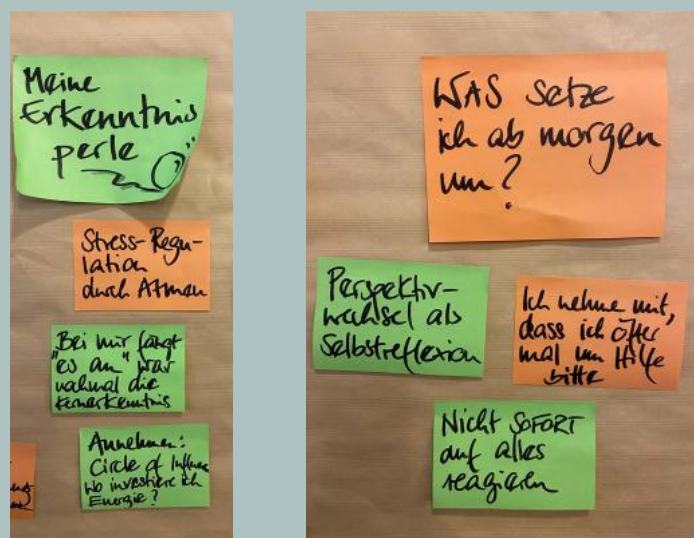 Meine
Erkenntnis
perle
Stress-Regu-
lation
durch Atmen
Bei mir fängt
"es an" war
nahmal die
Kernerkenntnis
Annehmen:
Circle of Influen
Wo investiere ich
Energie?
WAS setze
ich ab morgen
um?
Perspektiv-
wechsel als
Selbstreflexion
Ich nehme mit,
dass ich öfter
mal um Hilfe
bitte
Nicht SOFORT
auf alles
reagieren